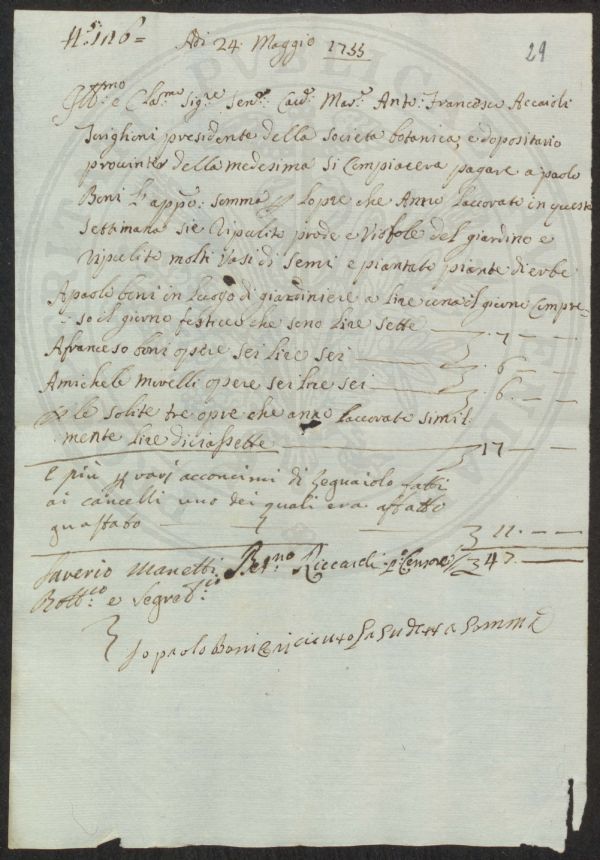 N.° 116=
Adi 24 Maggio 1755
29
Ill.mo e Cla.mo Sig.re Sen.re Cav.e Mar.e Ant.o Francesco Accaioli
Toriglioni presidente della Societa botanica, e dopositario
provinter della medesima Si Compiacera pagare a paolo
Boni L' app.o: Somma p lopre che Anno Laccorate in questa
Settimana Sie Ripulito prode e Viofole del giardino e
Ripulito molti Vasi di Semi e piantato piante di erbe
A paolo boni in Luogo di giardiniere a lire una il giorno Compre=
=so il giorno festivo che sono Lire Sette 7
A franceso boni opere Sei Lire Sei 6
A michele Morelli opere Sei Lire Sei 6
p le Solite tre opre che anno Laccorate Simil
mente Lire diciassette 17
E più p varj acconcimi di Legnaiolo fatti
ai cancelli uno dei quali era affatto
guastato 11
Saverio Manetti B.et.no Riccardi p.o Censore 47
Bott.co e Segret.rio
Jo paolo Boni o riceuto La Sudetta Somma